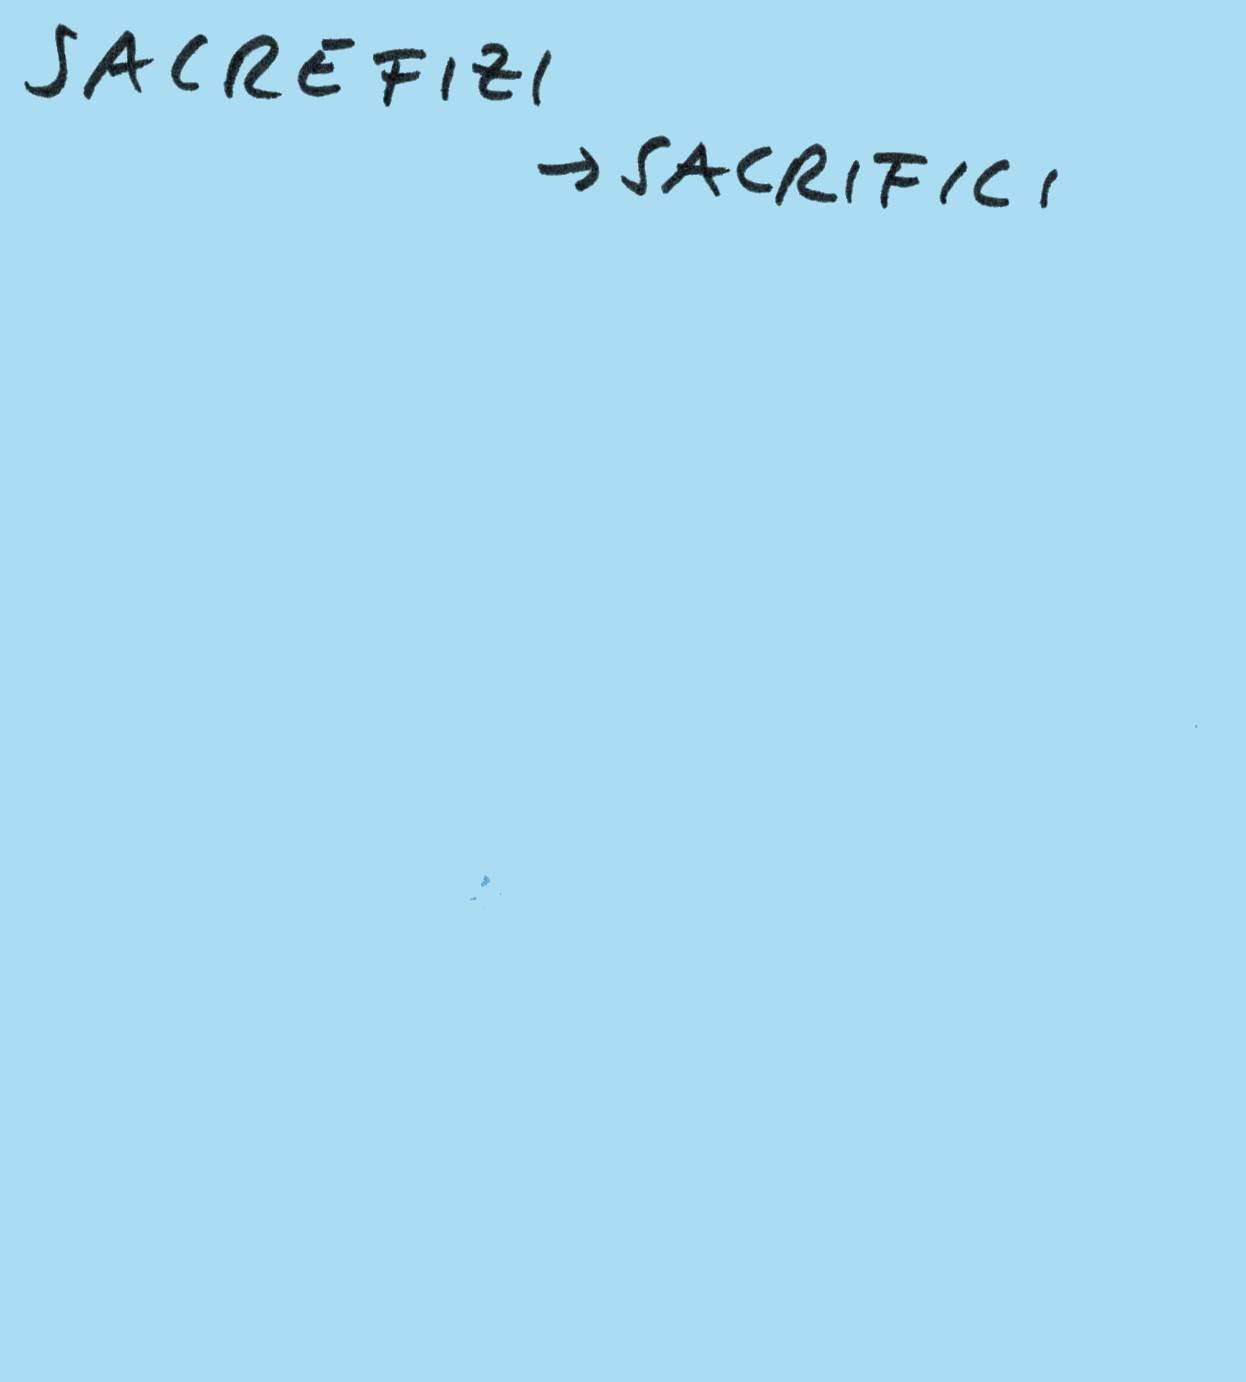 SACREFIZI
→ SACRIFICI